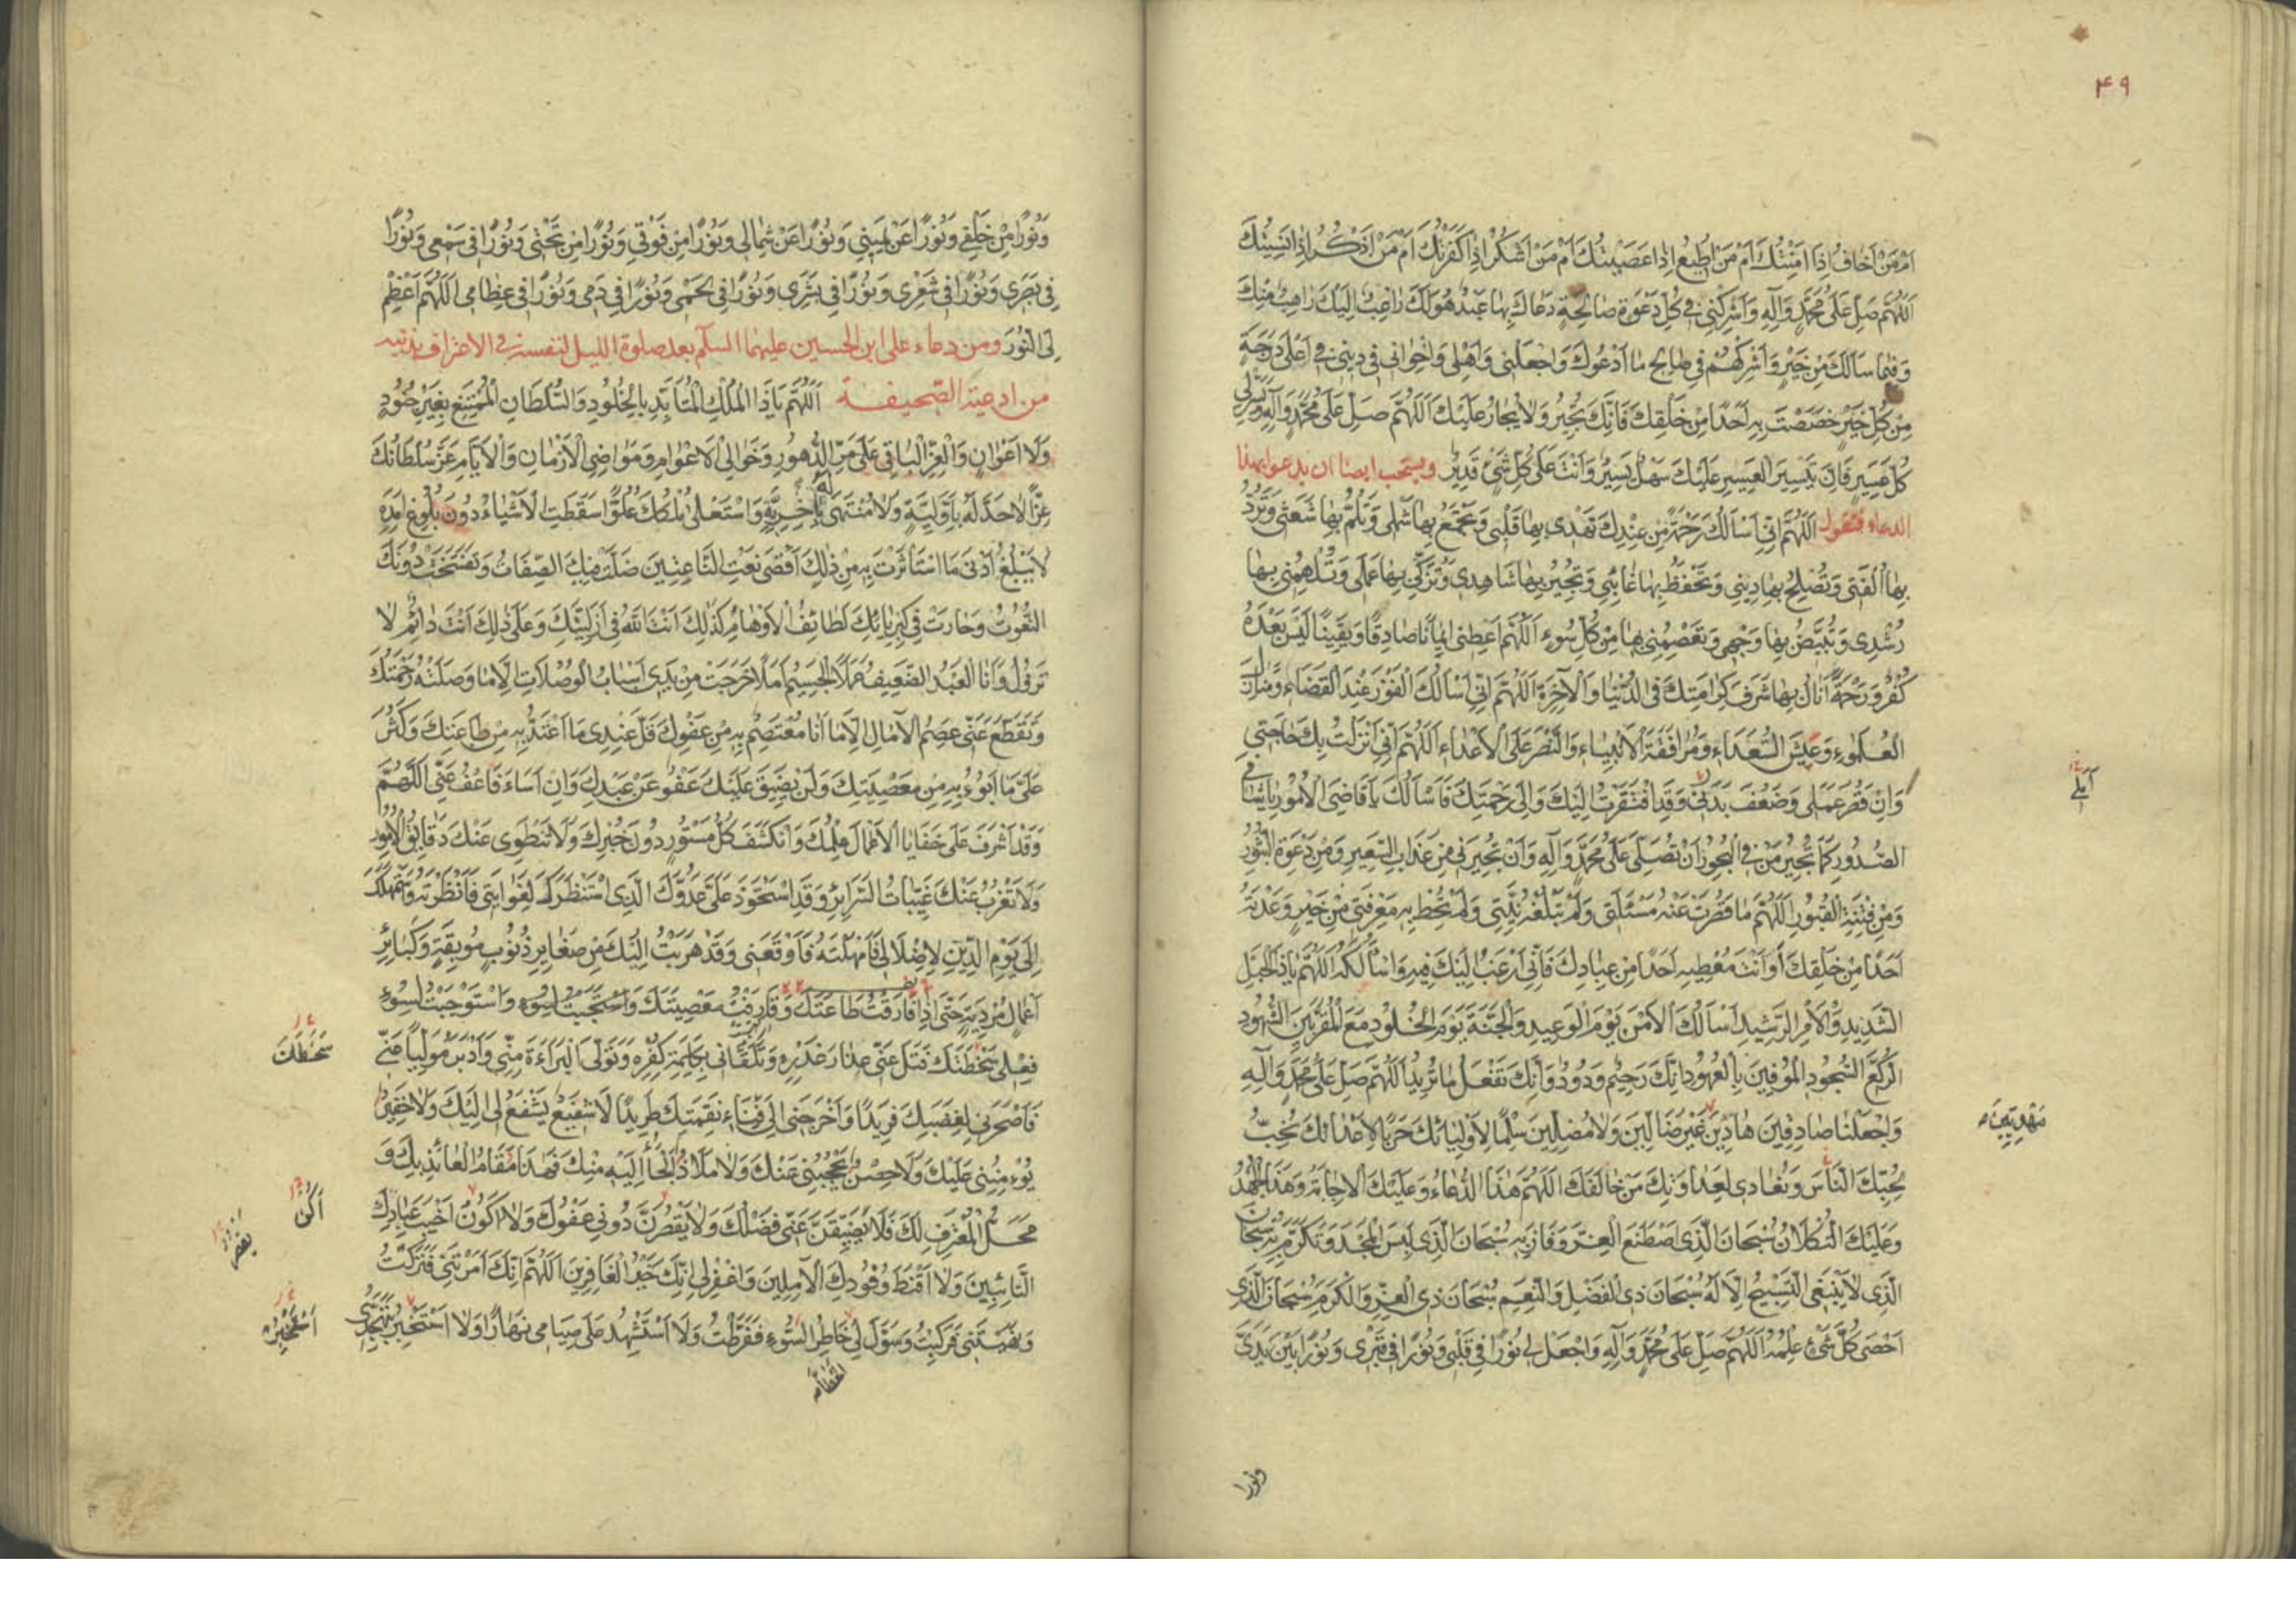 ۴۹
اَمْ مَنْ اَخافُ اِذَا اَمِنْتُكَ اَمْ مَنْ اُطِيعُ اِذا عَصَيْتُكَ اَمْ مَنْ اَشْكُرُ اِذا كَفَرْتُكَ اَمْ مَنْ اَذْكُرُ اِذا نَسِيتُكَ
اَللّهُمَّ صَلِّ عَلى مُحَمَّدٍ وَآلِهِ وَاَشْرِكْنِي في كُلِّ دَعْوَةٍ صالِحَةٍ دَعاكَ بِها عَبْدٌ هُوَ لَكَ راغِبٌ اِلَيْكَ راهِبٌ مِنْكَ
وَفيما سَاَلَكَ مِنْ خَيْرٍ وَاَشْرِكْهُمْ في صالِحِ ما اَدْعُوكَ وَاجْعَلْني وَاَهْلي وَاِخْواني في ديني في اَعْلى دَرَجَةٍ
مِنْ كُلِّ خَيْرٍ خَصَصْتَ بِهِ اَحَدًا مِنْ خَلْقِكَ فَاِنَّكَ تُجيرُ وَلا يُجارُ عَلَيْكَ اَللّهُمَّ صَلِّ عَلى مُحَمَّدٍ وَآلِهِ وَيَسِّرْ لي
كُلَّ عَسيرٍ فَاِنَّ تَيْسيرَ الْعَسيرِ عَلَيْكَ سَهْلٌ يَسيرٌ وَاَنْتَ عَلى كُلِّ شَيْءٍ قَديرٌ ويستحب ايضا ان يدعو بهذا
الدعاء فتقول اَللّهُمَّ اِنّي اَسْاَلُكَ رَحْمَةً مِنْ عِنْدِكَ تَهْدي بِها قَلْبي وَتَجْمَعُ بِها شَمْلي وَتَلُمُّ بِها شَعَثي وَتَرُدُّ
بِها اُلْفَتي وَتُصْلِحُ بِها ديني وَتَحْفَظُ بِها غائِبي وَتُجيرُ بِها شاهِدي وَتُزَكّي بِها عَمَلي وَتُلْهِمُني بِها
رُشْدي وَتُبَيِّضُ بِها وَجْهي وَتَعْصِمُني بِها مِنْ كُلِّ سُوءٍ اَللّهُمَّ اَعْطِني ايمانًا صادِقًا وَيَقينًا لَيْسَ بَعْدَهُ
كُفْرٌ وَرَحْمَةً اَنالُ بِها شَرَفَ كَرامَتِكَ في الدُّنْيا وَالْآخِرَةِ اَللّهُمَّ اِنّي اَسْاَلُكَ الْفَوْزَ عِنْدَ الْقَضاءِ وَمَنازِلَ
الْعُلَماءِ وَعَيْشَ السُّعَداءِ وَمُرافَقَةَ الْاَنْبِياءِ وَالنَّصْرَ عَلَى الْاَعْداءِ اَللّهُمَّ اِنّي اَنْزَلْتُ بِكَ حاجَتي
وَاِنْ قَصُرَ عَمَلي وَضَعُفَ بَدَني وَقَدِ افْتَقَرْتُ اِلَيْكَ وَاِلى رَحْمَتِكَ فَاَسْاَلُكَ يا قاضِيَ الْاُمُورِ يا شافي
الصُّدُورِ كَما تُجيرُ مَنْ في الْبُحُورِ اَنْ تُصَلِّيَ عَلى مُحَمَّدٍ وَآلِهِ وَاَنْ تُجيرَني مِنْ عَذابِ السَّعيرِ وَمِنْ دَعْوَةِ الثُّبُورِ
وَمِنْ فِتْنَةِ الْقُبُورِ اَللّهُمَّ ما قَصُرَتْ عَنْهُ مَسْئَلَتي وَلَمْ تَبْلُغْهُ نِيَّتي وَلَمْ تُحِطْ بِهِ مَعْرِفَتي مِنْ خَيْرٍ وَعَدْتَهُ
اَحَدًا مِنْ خَلْقِكَ اَوْ اَنْتَ مُعْطيهِ اَحَدًا مِنْ عِبادِكَ فَاِنّي اَرْغَبُ اِلَيْكَ فيهِ وَاَسْاَلُكَهُ اَللّهُمَّ يا ذَا الْحَبْلِ
الشَّديدِ وَالْاَمْرِ الرَّشيدِ اَسْاَلُكَ الْاَمْنَ يَوْمَ الْوَعيدِ وَالْجَنَّةَ يَوْمَ الْخُلُودِ مَعَ الْمُقَرَّبينَ الشُّهُودِ
الرُّكَّعِ السُّجُودِ الْمُوفينَ بِالْعُهُودِ اِنَّكَ رَحيمٌ وَدُودٌ وَاِنَّكَ تَفْعَلُ ما تُريدُ اَللّهُمَّ صَلِّ عَلى مُحَمَّدٍ وَآلِهِ
وَاجْعَلْنا صادِقينَ هادينَ غَيْرَ ضالّينَ وَلا مُضِلّينَ سِلْمًا لِاَوْلِيائِكَ حَرْبًا لِاَعْدائِكَ نُحِبُّ
بِحُبِّكَ النّاسَ وَنُعادي لِعَداوَتِكَ مَنْ خالَفَكَ اَللّهُمَّ هذَا الدُّعاءُ وَعَلَيْكَ الْاِجابَةُ وَهذَا الْجُهْدُ
وَعَلَيْكَ التُّكْلانُ سُبْحانَ الَّذِي اصْطَنَعَ الْعِزَّ وَفازَ بِهِ سُبْحانَ الَّذي لَبِسَ الْمَجْدَ وَتَكَرَّمَ بِهِ سُبْحانَ
الَّذي لا يَنْبَغِي التَّسْبيحُ اِلّا لَهُ سُبْحانَ ذِي الْفَضْلِ وَالنِّعَمِ سُبْحانَ ذِي الْعِزِّ وَالْكَرَمِ سُبْحانَ الَّذي
اَحْصى كُلَّ شَيْءٍ عِلْمُهُ اَللّهُمَّ صَلِّ عَلى مُحَمَّدٍ وَآلِهِ وَاجْعَلْ لي نُورًا في قَلْبي وَنُورًا في قَبْري وَنُورًا بَيْنَ يَدَيَّ
ونورا
مَهْدِيّينَ
وَنُورًا مِنْ خَلْفي وَنُورًا عَنْ يَميني وَنُورًا عَنْ شِمالي وَنُورًا مِنْ فَوْقي وَنُورًا مِنْ تَحْتي وَنُورًا في سَمْعي وَنُورًا
في بَصَري وَنُورًا في شَعْري وَنُورًا في بَشَري وَنُورًا في لَحْمي وَنُورًا في دَمي وَنُورًا في عِظامي اَللّهُمَّ اَعْظِمْ
لِيَ النُّورَ ومن دعاء علي ابن الحسين عليهما السلم بعد صلوة الليل لنفسه في الاعتراف بذنبه
من ادعية الصحيفة اَللّهُمَّ يا ذَا الْمُلْكِ الْمُتَاَبِّدِ بِالْخُلُودِ وَالسُّلْطانِ الْمُمْتَنِعِ بِغَيْرِ جُنُودٍ
وَلا اَعْوانٍ وَالْعِزِّ الْباقي عَلى مَرِّ الدُّهُورِ وَخَوالِي الْاَعْوامِ وَمَواضِي الْاَزْمانِ وَالْاَيّامِ عَزَّ سُلْطانُكَ
عِزًّا لا حَدَّ لَهُ بِاَوَّلِيَّةٍ وَلا مُنْتَهى لَهُ بِآخِرِيَّةٍ وَاسْتَعْلى مُلْكُكَ عُلُوًّا سَقَطَتِ الْاَشْياءُ دُونَ بُلُوغِ اَمَدِهِ
لا يَبْلُغُ اَدْنى مَا اسْتَاْثَرْتَ بِهِ مِنْ ذلِكَ اَقْصى نَعْتِ النّاعِتينَ ضَلَّتْ فيكَ الصِّفاتُ وَتَفَسَّخَتْ دُونَكَ
النُّعُوتُ وَحارَتْ في كِبْرِيائِكَ لَطائِفُ الْاَوْهامِ كَذلِكَ اَنْتَ اللهُ في اَزَلِيَّتِكَ وَعَلى ذلِكَ اَنْتَ دائِمٌ لا
تَزُولُ وَاَنَا الْعَبْدُ الضَّعيفُ عَمَلًا الْجَسيمُ اَمَلًا خَرَجَتْ مِنْ يَدي اَسْبابُ الْوُصُلاتِ اِلّا ما وَصَلَتْهُ رَحْمَتُكَ
وَتَقَطَّعَتْ عَنّي عِصَمُ الْآمالِ اِلّا ما اَنَا مُعْتَصِمٌ بِهِ مِنْ عَفْوِكَ قَلَّ عِنْدي ما اَعْتَدُّ بِهِ مِنْ طاعَتِكَ وَكَثُرَ
عَلَيَّ ما اَبُوءُ بِهِ مِنْ مَعْصِيَتِكَ وَلَنْ يَضيقَ عَلَيْكَ عَفْوٌ عَنْ عَبْدِكَ وَاِنْ اَساءَ فَاعْفُ عَنّي اَللّهُمَّ
وَقَدْ اَشْرَفَ عَلى خَفايَا الْاَعْمالِ عِلْمُكَ وَانْكَشَفَ كُلُّ مَسْتُورٍ دُونَ خُبْرِكَ وَلا تَنْطَوي عَنْكَ دَقائِقُ الْاُمُورِ
وَلا تَعْزُبُ عَنْكَ غَيِّباتُ السَّرائِرِ وَقَدِ اسْتَحْوَذَ عَلَيَّ عَدُوُّكَ الَّذِي اسْتَنْظَرَكَ لِغَوايَتي فَاَنْظَرْتَهُ وَاسْتَمْهَلَكَ
اِلى يَوْمِ الدّينِ لِاِضْلالي فَاَمْهَلْتَهُ فَاَوْقَعَني وَقَدْ هَرَبْتُ اِلَيْكَ مِنْ صَغايِرِ ذُنُوبٍ مُوبِقَةٍ وَكَبائِرِ
اَعْمالٍ مُرْدِيَةٍ حَتّى اِذا فارَقْتُ طاعَتَكَ وَقارَفْتُ مَعْصِيَتَكَ وَاسْتَوْجَبْتُ لِسُوءِ
فِعْلي سَخْطَتَكَ فَتَلَ عَنّي عِذارَ غَدْرِهِ وَتَلَقّاني بِكَلِمَةِ كُفْرِهِ وَتَوَلَّى الْبَراءَةَ مِنّي وَاَدْبَرَ مُوَلِّيًا عَنّي
فَاَصْحَرَني لِغَضَبِكَ فَريدًا وَاَخْرَجَني اِلى فِناءِ نَقِمَتِكَ طَريدًا لا شَفيعٌ يَشْفَعُ لي اِلَيْكَ وَلا خَفيرٌ
يُؤْمِنُني عَلَيْكَ وَلا حِصْنٌ يَحْجُبُني عَنْكَ وَلا مَلاذٌ اَلْجَاُ اِلَيْهِ مِنْكَ فَهذا مَقامُ الْعائِذِ بِكَ وَ
مَحَلُّ الْمُعْتَرِفِ لَكَ فَلا يَضيقَنَّ عَنّي فَضْلُكَ وَلا يَقْصُرَنَّ دُوني عَفْوُكَ وَلا اَكُونُ اَخْيَبَ عِبادِكَ
التّائِبينَ وَلا اَقْنَطَ وُفُودِكَ الْآمِلينَ وَاغْفِرْ لي اِنَّكَ خَيْرُ الْغافِرينَ اَللّهُمَّ اِنَّكَ اَمَرْتَني فَتَرَكْتُ
وَنَهَيْتَني فَرَكِبْتُ وَسَوَّلَ لي خاطِرُ السُّوءِ فَفَرَّطْتُ وَلا اَسْتَشْهِدُ عَلى صِيامي نَهارًا وَلا اَسْتَجيرُ بِتَهَجُّدي
سَخَطَكَ
اَكُنْ
اَسْتَجيرُ